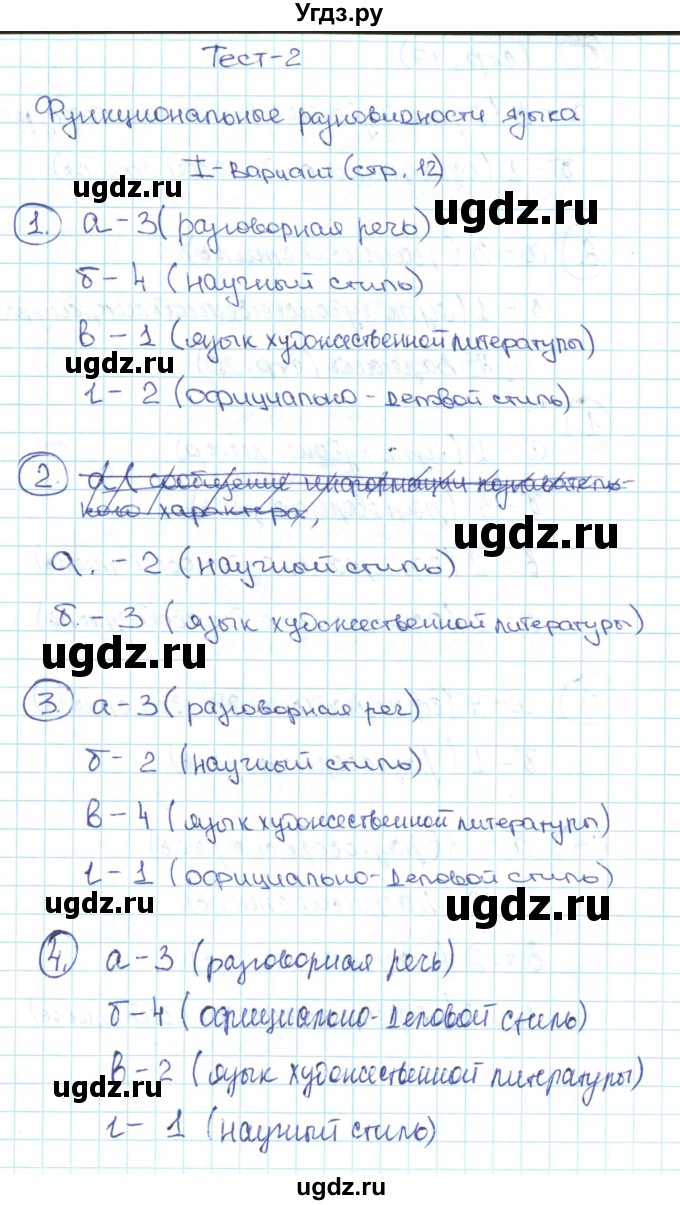 Угдз.ру
Тест-2
Функциональные разновидности языка
I-вариант (стр. 12)
ugdz.ru
ugdz.ru
1. а-3 (разговорная речь)
б-4 (научный стиль)
в-1 (язык художественной литературы)
ugdz.ru
г-2 (официально-деловой стиль)
2. а) сообщение информации познаватель-
ного характера,
ugdz.ru
а.-2 (научный стиль)
б.-3 (язык художественной литературы)
ugdz.ru
3. а-3 (разговорная реч)
б-2 (научный стиль)
в-4 (язык художественной литературы)
г-1 (официально-деловой стиль)
ugdz.ru
ugdz.ru
4. а-3 (разговорная речь)
б-4 (официально-деловой стиль)
в-2 (язык художественной литературы)
ugdz.ru
г-1 (научный стиль)
ugdz.ru